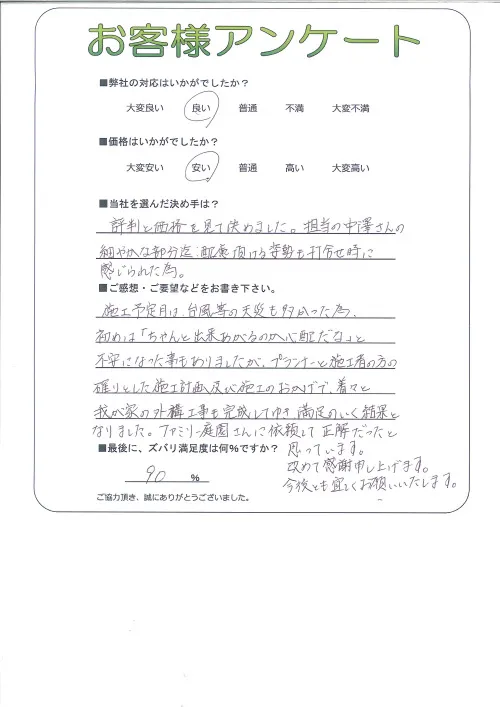 お客様アンケート
■弊社の対応はいかがでしたか？
大変良い 良い 普通 不満 大変不満
■価格はいかがでしたか？
大変安い 安い 普通 高い 大変高い
■当社を選んだ決め手は？
評判と価格を見て決めました。担当の中澤さんの
細やかな部分迄ご配慮頂ける姿勢も打合せ時に
感じられた為。
■ご感想・ご要望などをお書き下さい。
施工予定月は、台風等の天災も多かった為、
初めは「ちゃんと出来あがるのか心配だな」と
不安になった事もありましたが、プランナーと施工者の方の
確りとした施工計画及び施工のおかげで、着々と
我が家の外構工事も完成してゆき、満足のいく結果と
なりました。ファミリー庭園さんに依頼して正解だったと
思っています。
改めて感謝申し上げます。
今後とも宜しくお願いいたします。
■最後に、ズバリ満足度は何％ですか？
90 %
ご協力頂き、誠にありがとうございました。